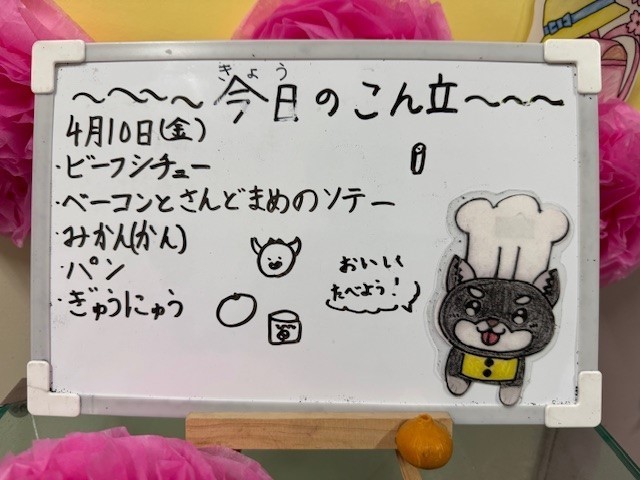 きょう
～～～～今日のこん立～～～
4月10日(金)
・ビーフシチュー
・ベーコンとさんどまめのソテー
・みかん(かん)
・パン
・ぎゅうにゅう
おいしく
たべよう!